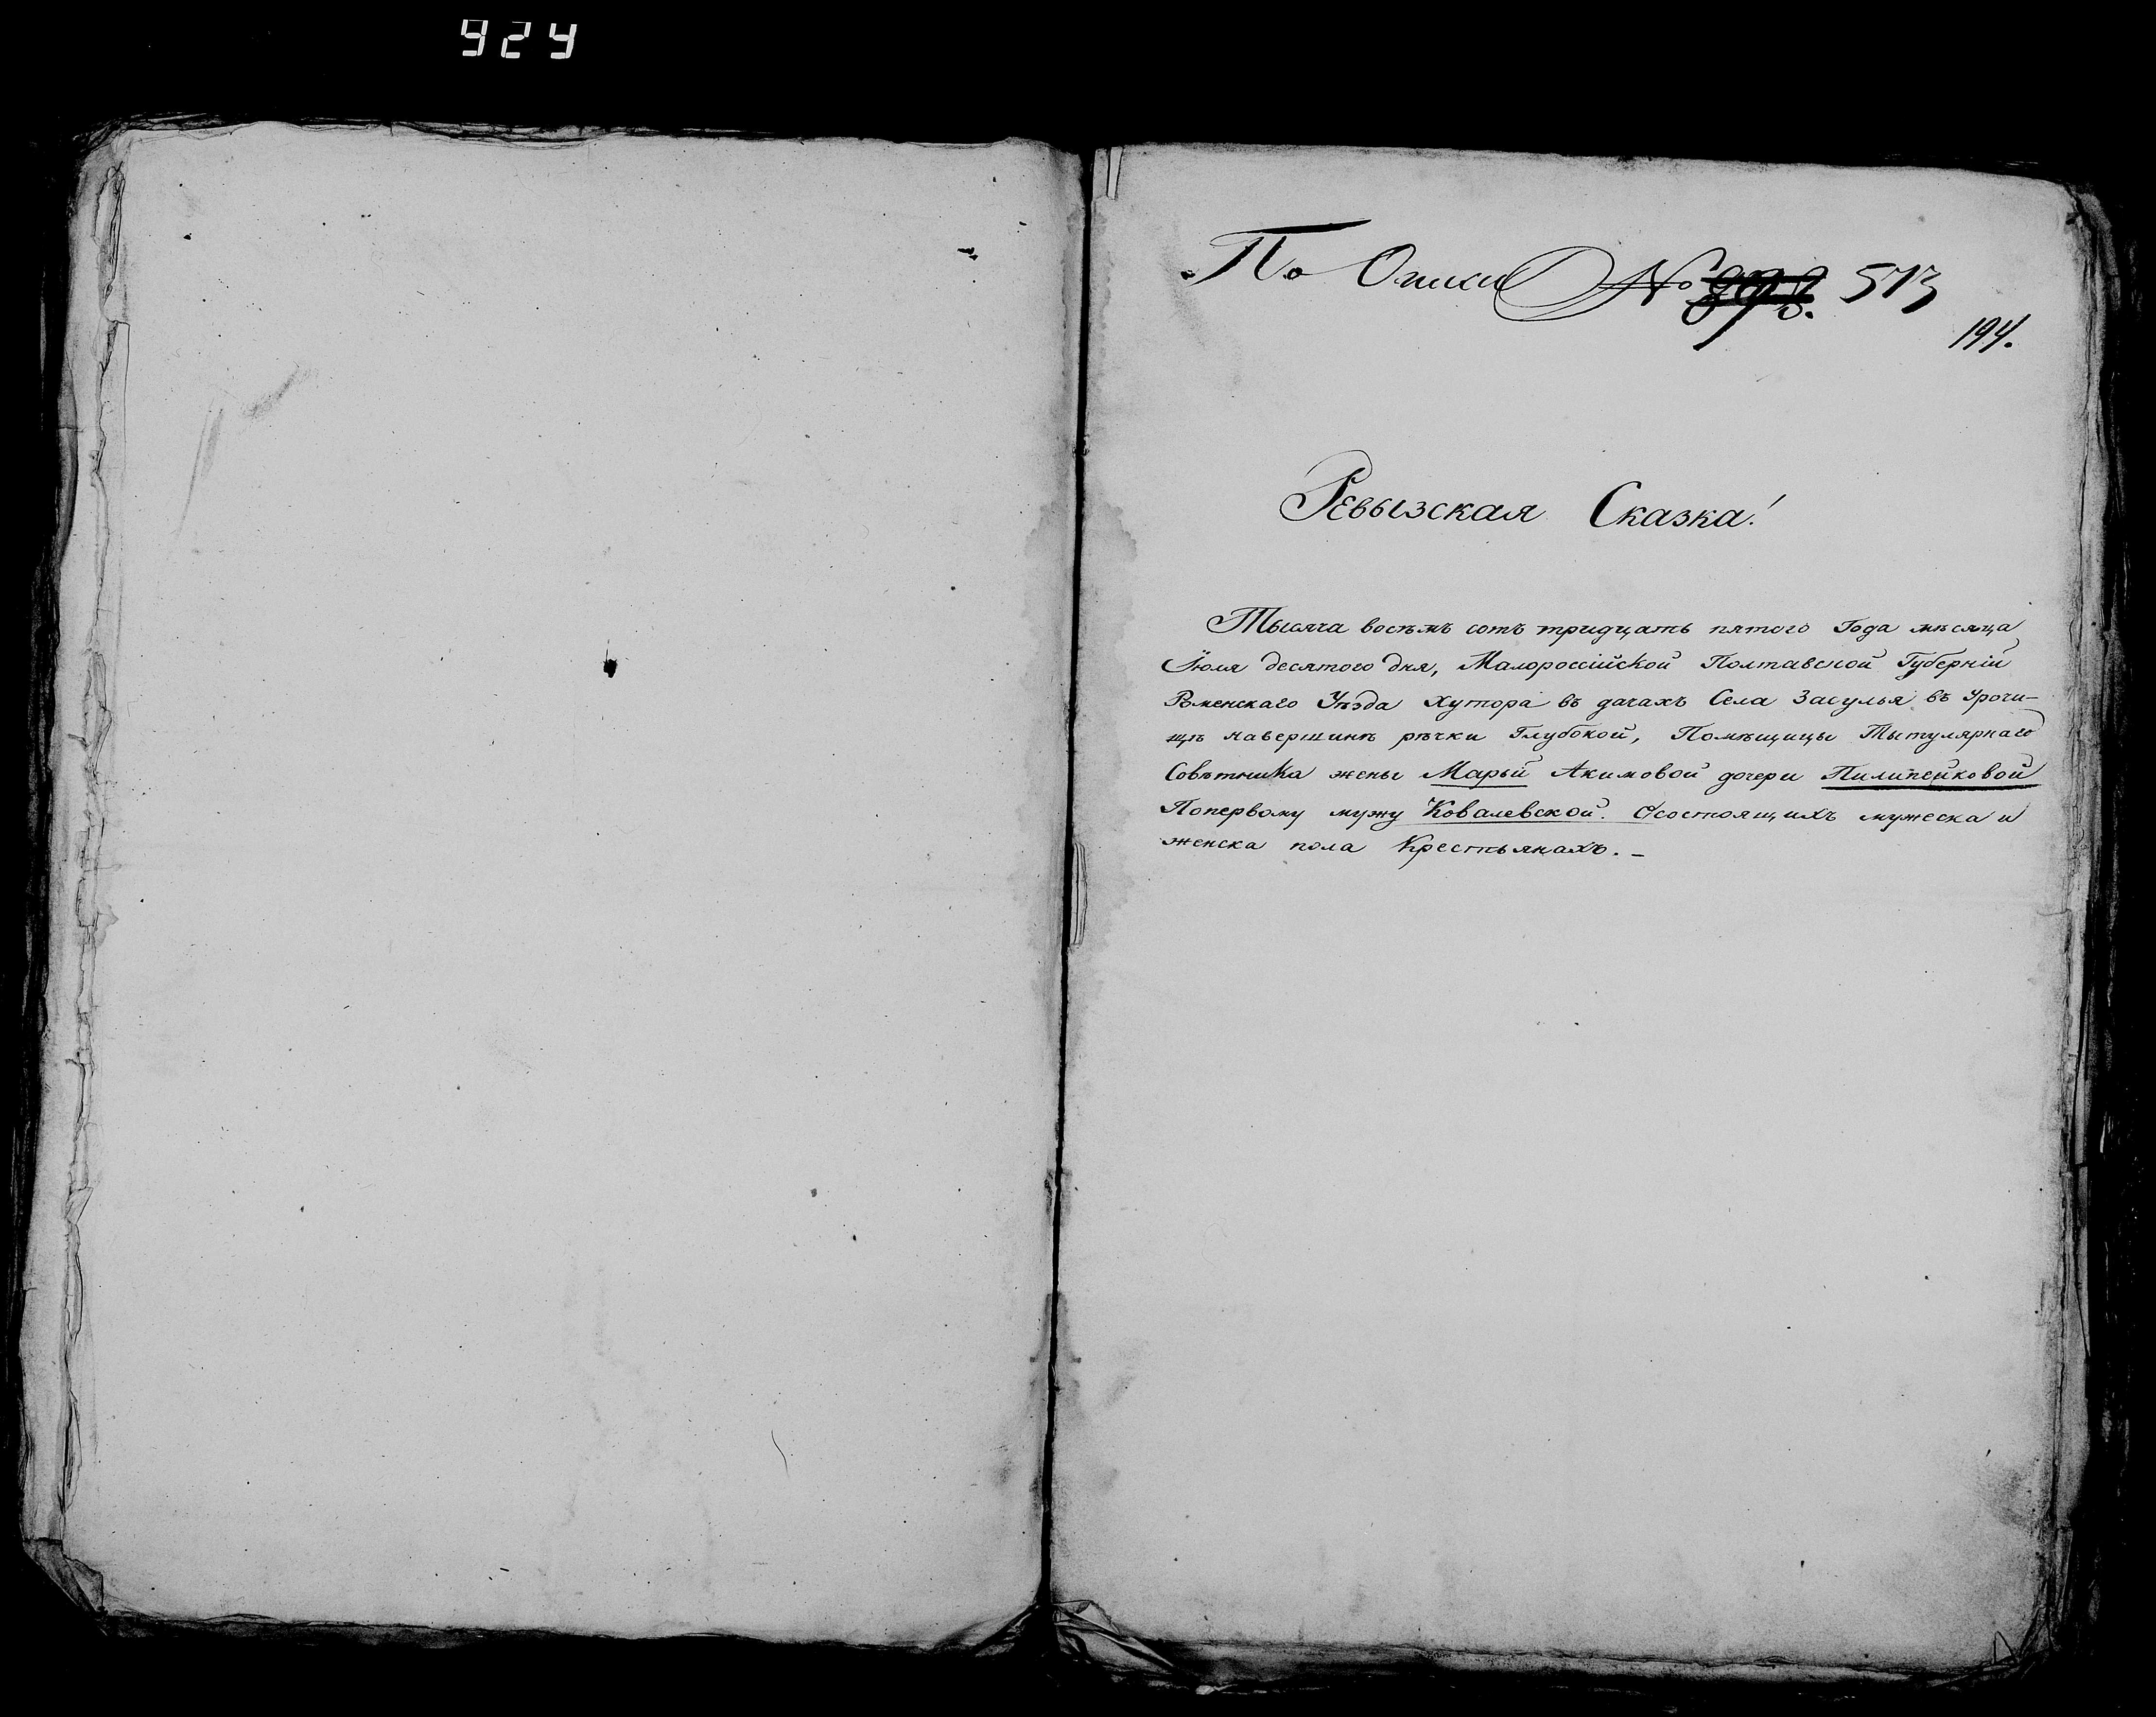 924
По Описи № 513
194.
Ревызская Сказка!
Тысяча восѣмъ сотъ тридцать пятого Года мѣсяца
Іюля десятого дня, Малороссійской Полтавской Губерніи
Роменскаго Уѣзда Хутора въ дачахъ Села Засулья въ Урочи-
щѣ навершинѣ рѣчки Глубокой, Помѣщицы Тытулярнаго
Совѣтника жены Марьи Акимовой дочери Пилипейковой
Попервому мужу Ковалевской. Осостоящихъ мужеска и
женска пола Крестьянахъ. –